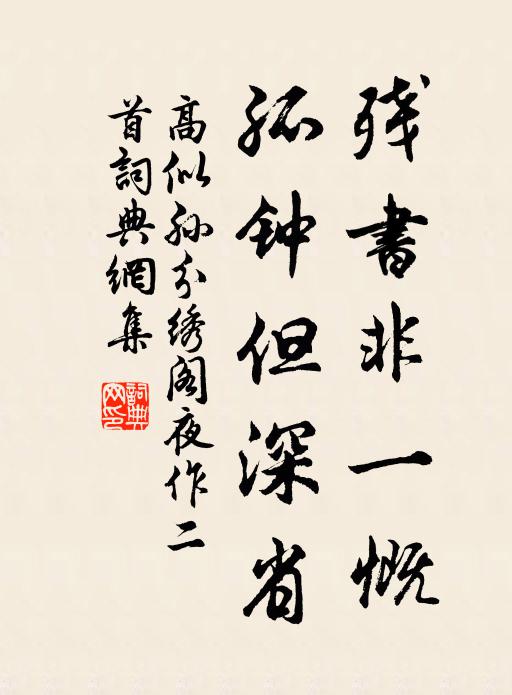 残書非一慨
孤钟但深省
高似孙分绣阁夜作二
首詞典網集
詞典
网印